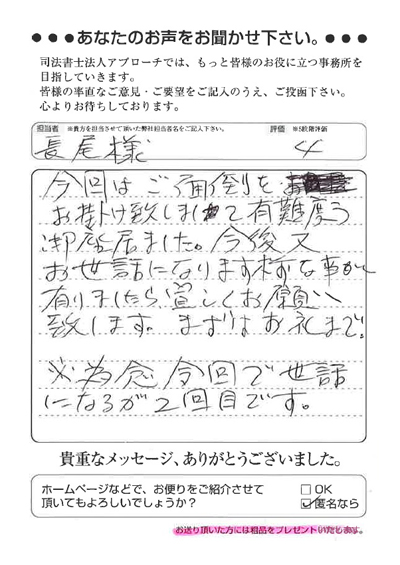 ●●●あなたのお声をお聞かせ下さい。●●●
司法書士法人アプローチでは、もっと皆様のお役に立つ事務所を
目指していきます。
皆様の率直なご意見・ご要望をご記入のうえ、ご投函下さい。
心よりお待ちしております。
担当者 ※貴方を担当させて頂いた弊社担当者名をご記入下さい。 評価 ※5段階評価
長尾様 4
今回はご面倒を
お掛け致しまして有難度う
御座居ました。今後又
お世話になります様な事が
有りましたら宜しくお願い
致します。まずはお礼まで。
※為念 今回で世話
になるが2回目です。
貴重なメッセージ、ありがとうございました。
ホームページなどで、お便りをご紹介させて
頂いてもよろしいでしょうか?
□OK
☑匿名なら
お送り頂いた方には粗品をプレゼントいたします。